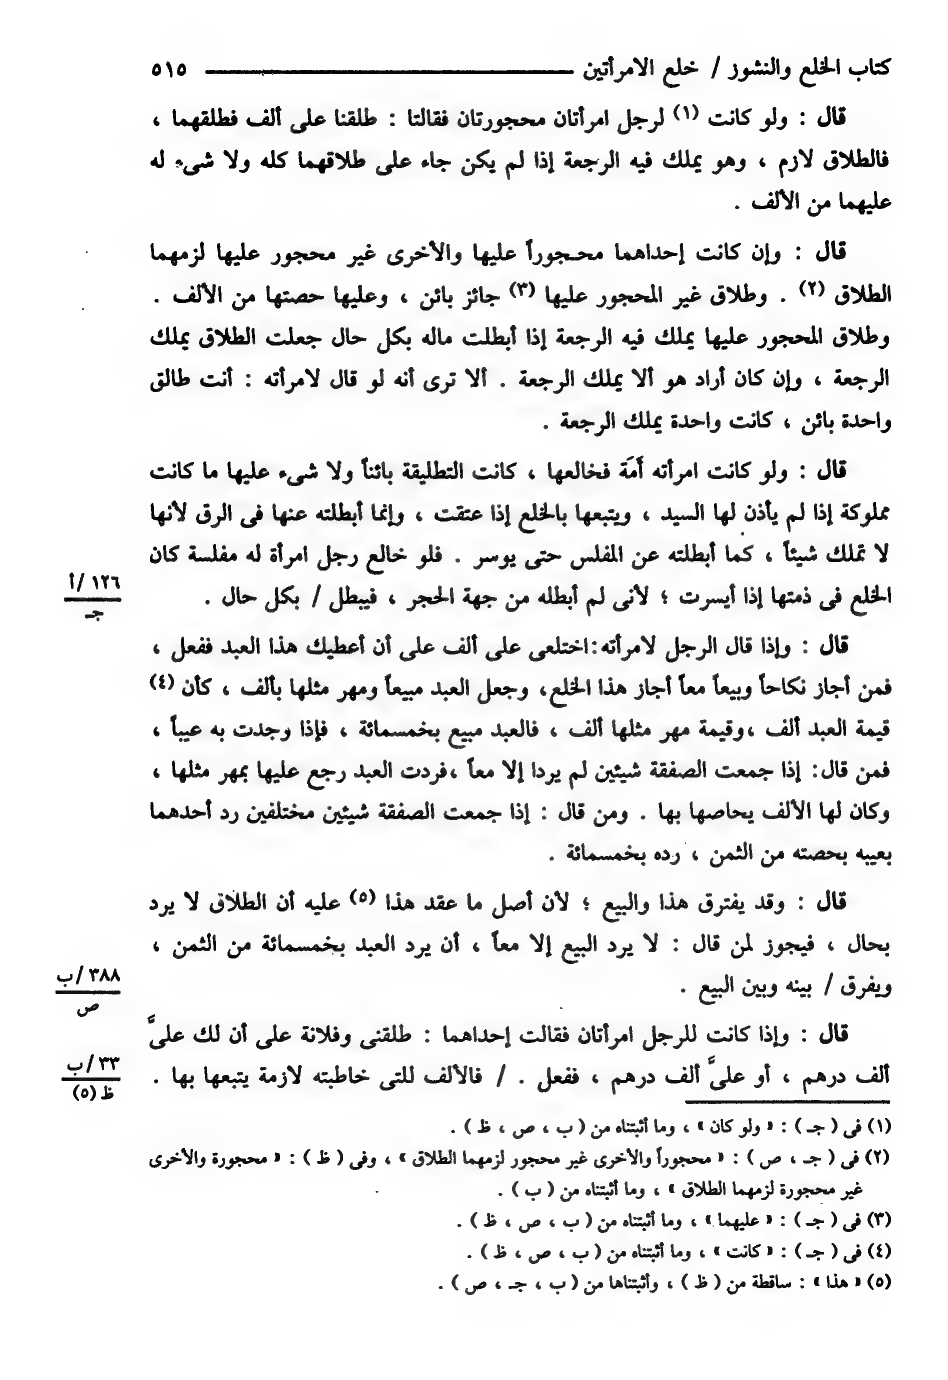 كتاب الخلع والنشوز / خلع الامرأتين ٥١٥
قال : ولو كانت (١) لرجل امرأتان محجورتان فقالتا : طلقنا على ألف فطلقهما ،
فالطلاق لازم ، وهو يملك فيه الرجعة إذا لم يكن جاء على طلاقهما كله ولا شىء له
عليهما من الألف .
قال : وإن كانت إحداهما محجوراً عليها والأخرى غير محجور عليها لزمهما
الطلاق (٢) . وطلاق غير المحجور عليها (٣) جائز بائن ، وعليها حصتها من الألف .
وطلاق المحجور عليها يملك فيه الرجعة إذا أبطلت ماله بكل حال جعلت الطلاق يملك
الرجعة ، وإن كان أراد هو ألا يملك الرجعة . ألا ترى أنه لو قال لامرأته : أنت طالق
واحدة بائن ، كانت واحدة يملك الرجعة .
قال : ولو كانت امرأته أمَة فخالعها ، كانت التطليقة بائناً ولا شىء عليها ما كانت
مملوكة إذا لم يأذن لها السيد ، ويتبعها بالخلع إذا عتقت ، وإنما أبطلته عنها فى الرق لأنها
لا تملك شيئاً ، كما أبطلته عن المفلس حتى يوسر . فلو خالع رجل امرأة له مفلسة كان
الخلع فى ذمتها إذا أيسرت ؛ لأنى لم أبطله من جهة الحجر ، فيبطل / بكل حال .
١٢٦ /أ
جـ
قال : وإذا قال الرجل لامرأته:اختلعى على ألف على أن أعطيك هذا العبد ففعل ،
فمن أجاز نكاحاً وبيعاً معاً أجاز هذا الخلع، وجعل العبد مبيعاً ومهر مثلها بألف ، كأن (٤)
قيمة العبد ألف ،وقيمة مهر مثلها ألف ، فالعبد مبيع بخمسمائة ، فإذا وجدت به عيباً ،
فمن قال: إذا جمعت الصفقة شيئين لم يردا إلا معاً ،فردت العبد رجع عليها بمهر مثلها ،
وكان لها الألف يحاصها بها . ومن قال : إذا جمعت الصفقة شيئين مختلفين رد أحدهما
بعيبه بحصته من الثمن ، رده بخمسمائة .
قال : وقد يفترق هذا والبيع ؛ لأن أصل ما عقد هذا (٥) عليه أن الطلاق لا يرد
بحال ، فيجوز لمن قال : لا يرد البيع إلا معاً ، أن يرد العبد بخمسمائة من الثمن ،
ويفرق / بينه وبين البيع .
٣٨٨ /ب
ص
قال : وإذا كانت للرجل امرأتان فقالت إحداهما : طلقنى وفلانة على أن لك علىَّ
ألف درهم ، أو علىَّ ألف درهم ، ففعل . / فالألف للتى خاطبته لازمة يتبعها بها .
٣٣ /ب
ظ (٥)
(١) فى ( جـ ) : « ولو كان » ، وما أثبتناه من ( ب ، ص ، ظ ) .
(٢) فى ( جـ ، ص ) : « محجوراً والأخرى غير محجور لزمهما الطلاق » ، وفى ( ظ ) : « محجورة والأخرى
غير محجورة لزمهما الطلاق » ، وما أثبتناه من ( ب ) .
(٣) فى ( جـ ) : « عليهما » ، وما أثبتناه من ( ب ، ص ، ظ ) .
(٤) فى ( جـ ) : « كانت » ، وما أثبتناه من ( ب ، ص ، ظ ) .
(٥) « هذا » : ساقطة من ( ظ ) ، وأثبتناها من ( ب ، جـ ، ص ) .